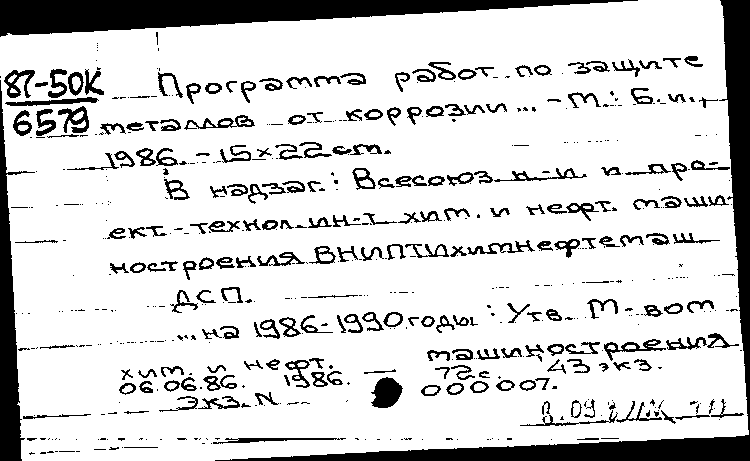 87-50К Программа работ по защите
6579 металлов от коррозии... - М.: Б.и.,
1986. - 15×22 см.
В надзаг.: Всесоюз. н.-и. и про-
ект.-технол. ин-т хим. и нефт. маши-
ностроения ВНИПТИхимнефтемаш
ДСП.
...на 1986-1990 годы : Утв. М-вом
хим. и нефт. машиностроения
06.06.86. 1986. — 72 с. 43 экз.
Экз. N 000007.